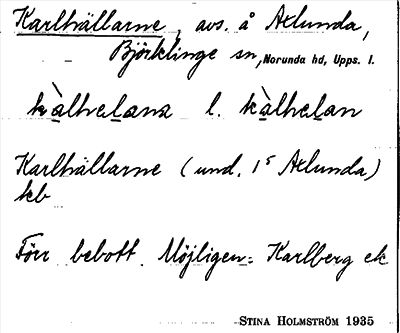 Karlhällarne, avs. å Axlunda,
Björklinge sn, Norunda hd, Upps. l.
kàlhelana l. kàlhelan
Karlhällarne (und. 1⁵ Axlunda)
kb
Förr bebott. Möjligen = Karlberg ek
STINA HOLMSTRÖM 1935